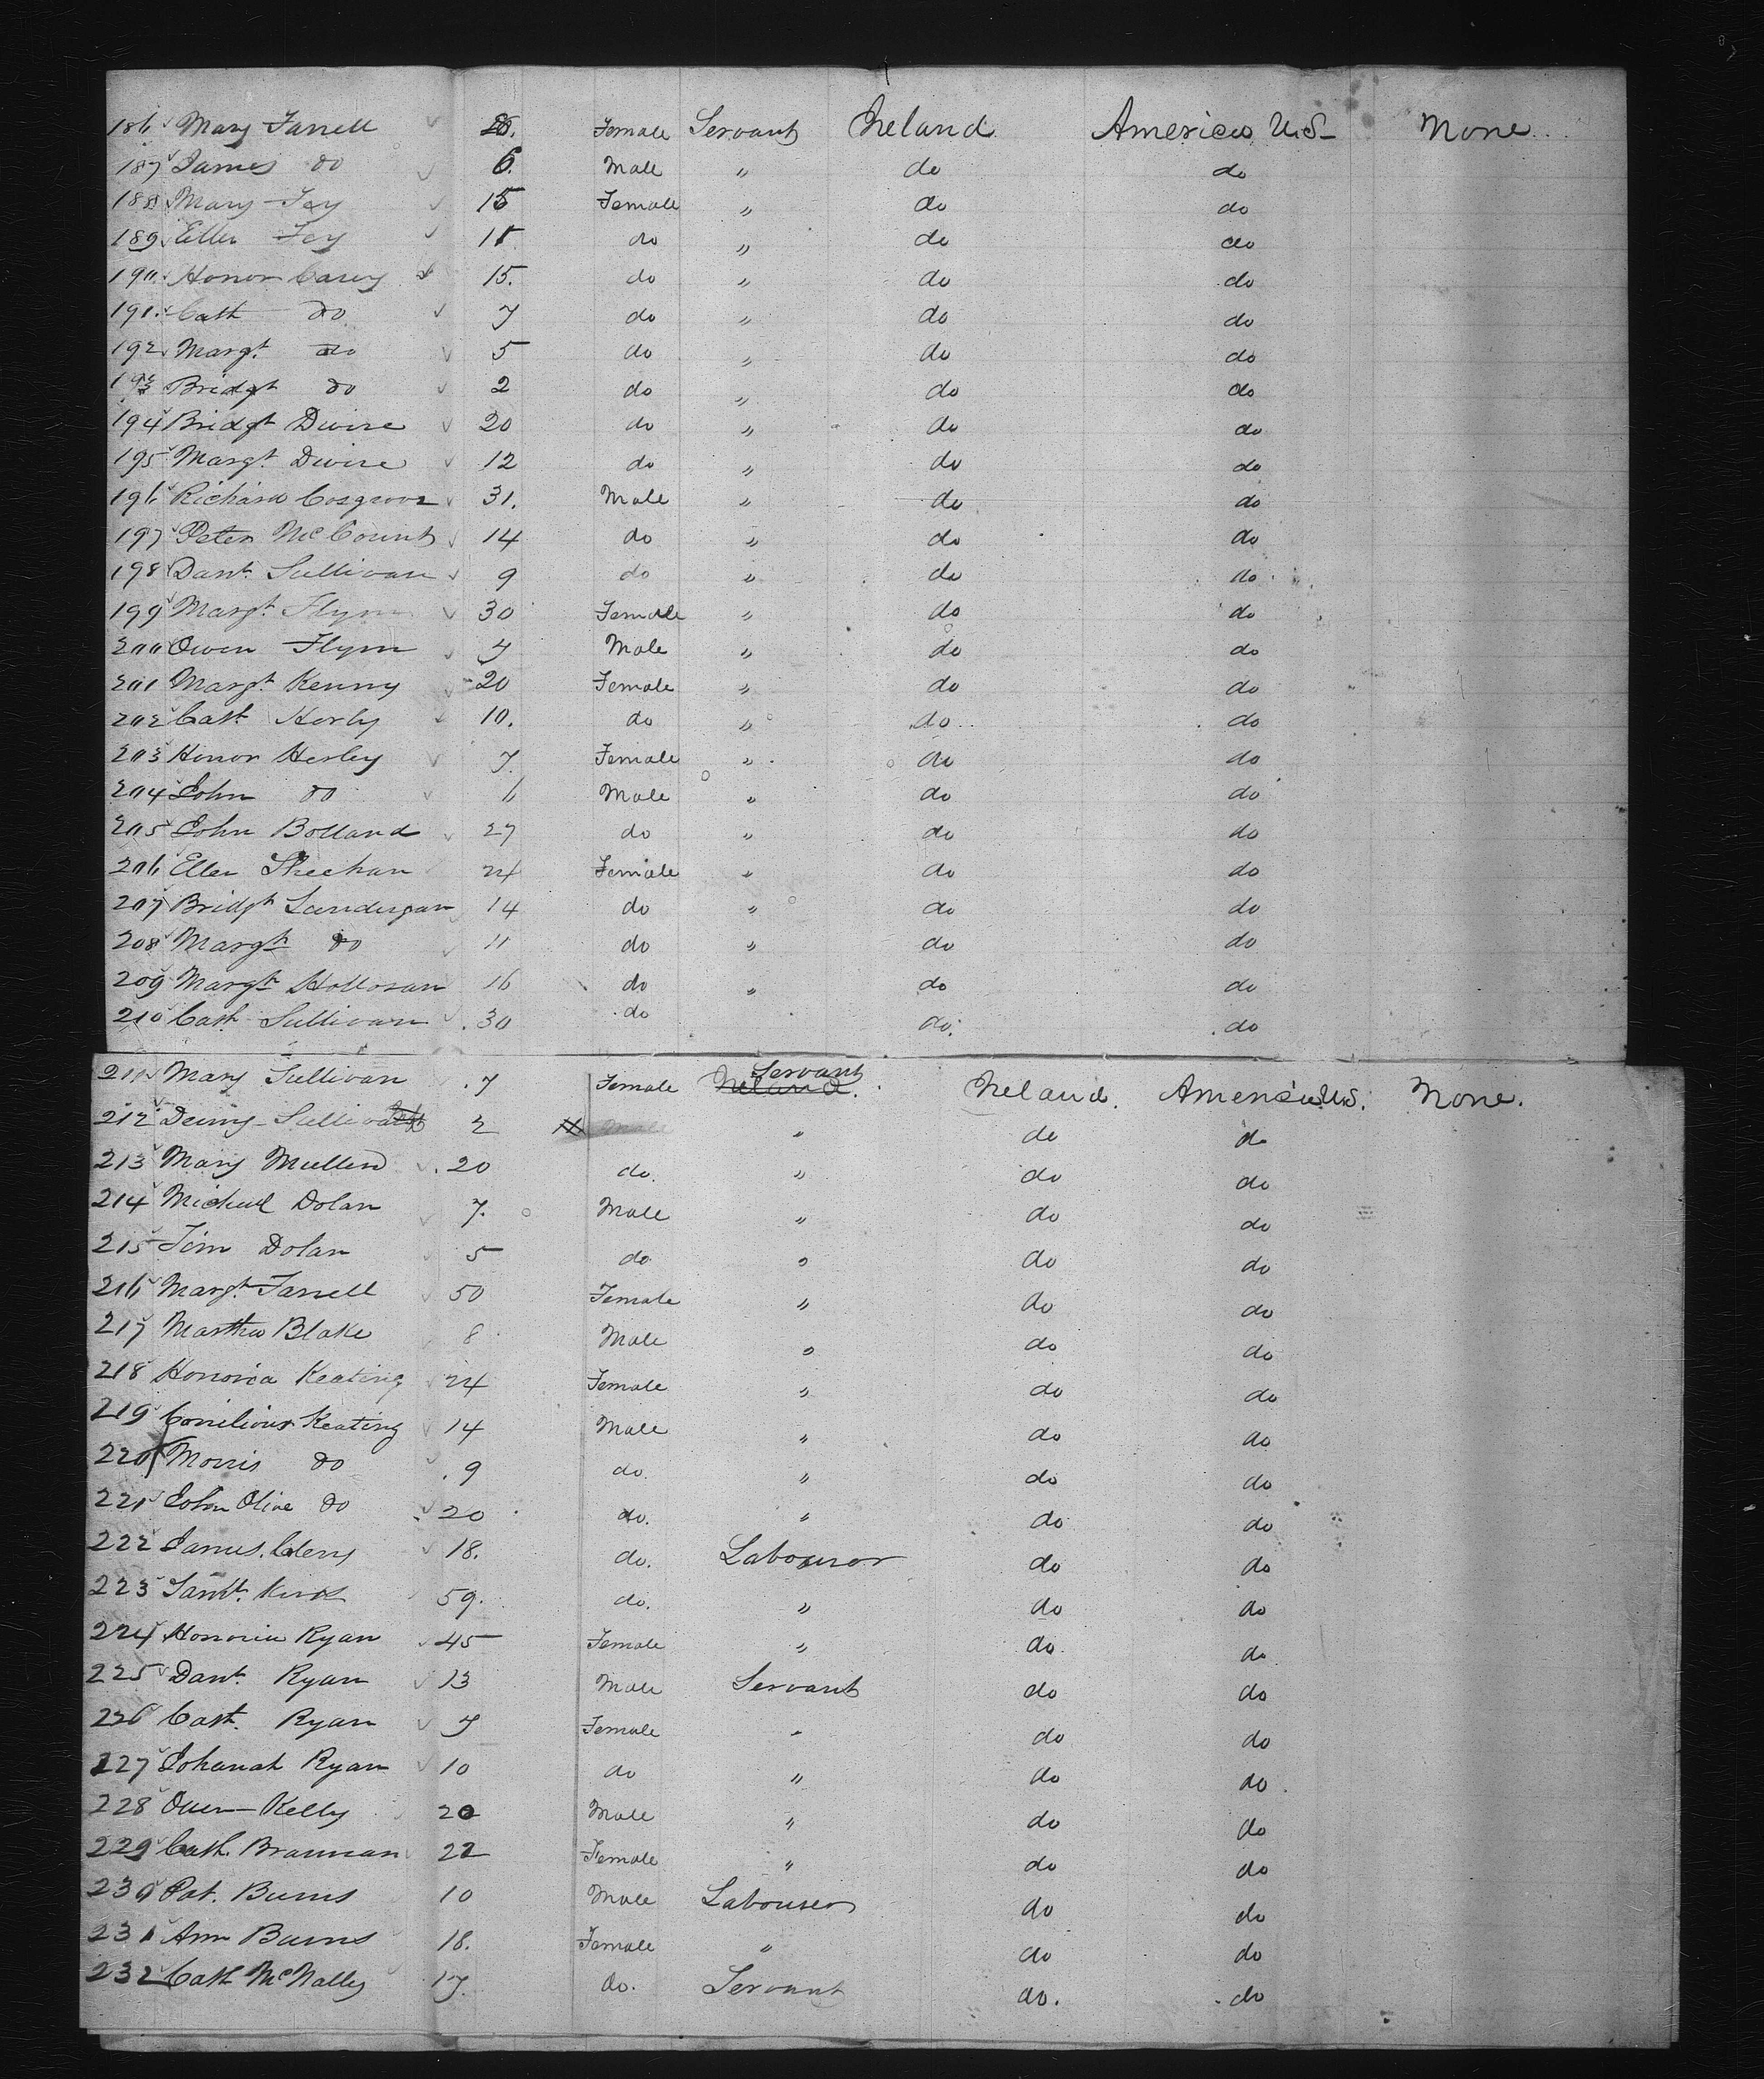 186 Mary Farrell 26. Female Servant Ireland America U.S. None
187 James do 6. Male " do do
188 Mary Fey 15 Female " do do
189 Ellen Fey 11 do " do do
190 Honor Carey 15. do " do do
191. Cath do 7 do " do do
192 Margt. do 5 do " do do
193 Bridgt do 2 do " do do
194 Bridgt Divire 20 do " do do
195 Margt. Divire 12 do " do do
196 Richard Cosgrove 31. Male " do do
197 Peter McCount 14 do " do do
198 Danl. Sullivan 9 do " do do
199 Margt. Flynn 30 Female " do do
200 Owen Flynn 7 Male " do do
201 Margt. Kenny 20 Female " do do
202 Cath Herly 10. do " do do
203 Honor Herley 7. Female " do do
204 John do 6 Male " do do
205 John Bolland 27 do " do do
206 Ellen Sheehan 24 Female " do do
207 Bridgt Landergan 14 do " do do
208 Margt do 11 do " do do
209 Margt Holloran 16 do " do do
210 Cath Sullivan 30 do do. do
211 Mary Sullivan 7 Female Ireland. Servant Ireland. America U.S. None.
212 Denny Sullivan 2 Male " do do
213 Mary Mullen 20 do. " do do
214 Michael Dolan 7. Male " do do
215 Tim Dolan 5 do " do do
216 Margt. Farrell 50 Female " do do
217 Matthew Blake 8 Male " do do
218 Honoria Keating 24 Female " do do
219 Cornilious Keating 14 Male " do do
220 Morris do 9 do. " do do
221 John Olive do 20 do. " do do
222 James Cleny 18. do. Labourer do do
223 59. do. " do do
224 Honoria Ryan 45 Female " do do
225 Danl. Ryan 13 Male Servant do do
226 Cath. Ryan 7 Female " do do
227 Johanah Ryan 10 do " do do
228 Owen Kelly 20 Male " do do
229 Cath. Brannan 22 Female " do do
230 Pat. Burns 10 Male Labourer do do
231 Ann Burns 18. Female " do do
232 Cath McNally 17. do. Servant do. do